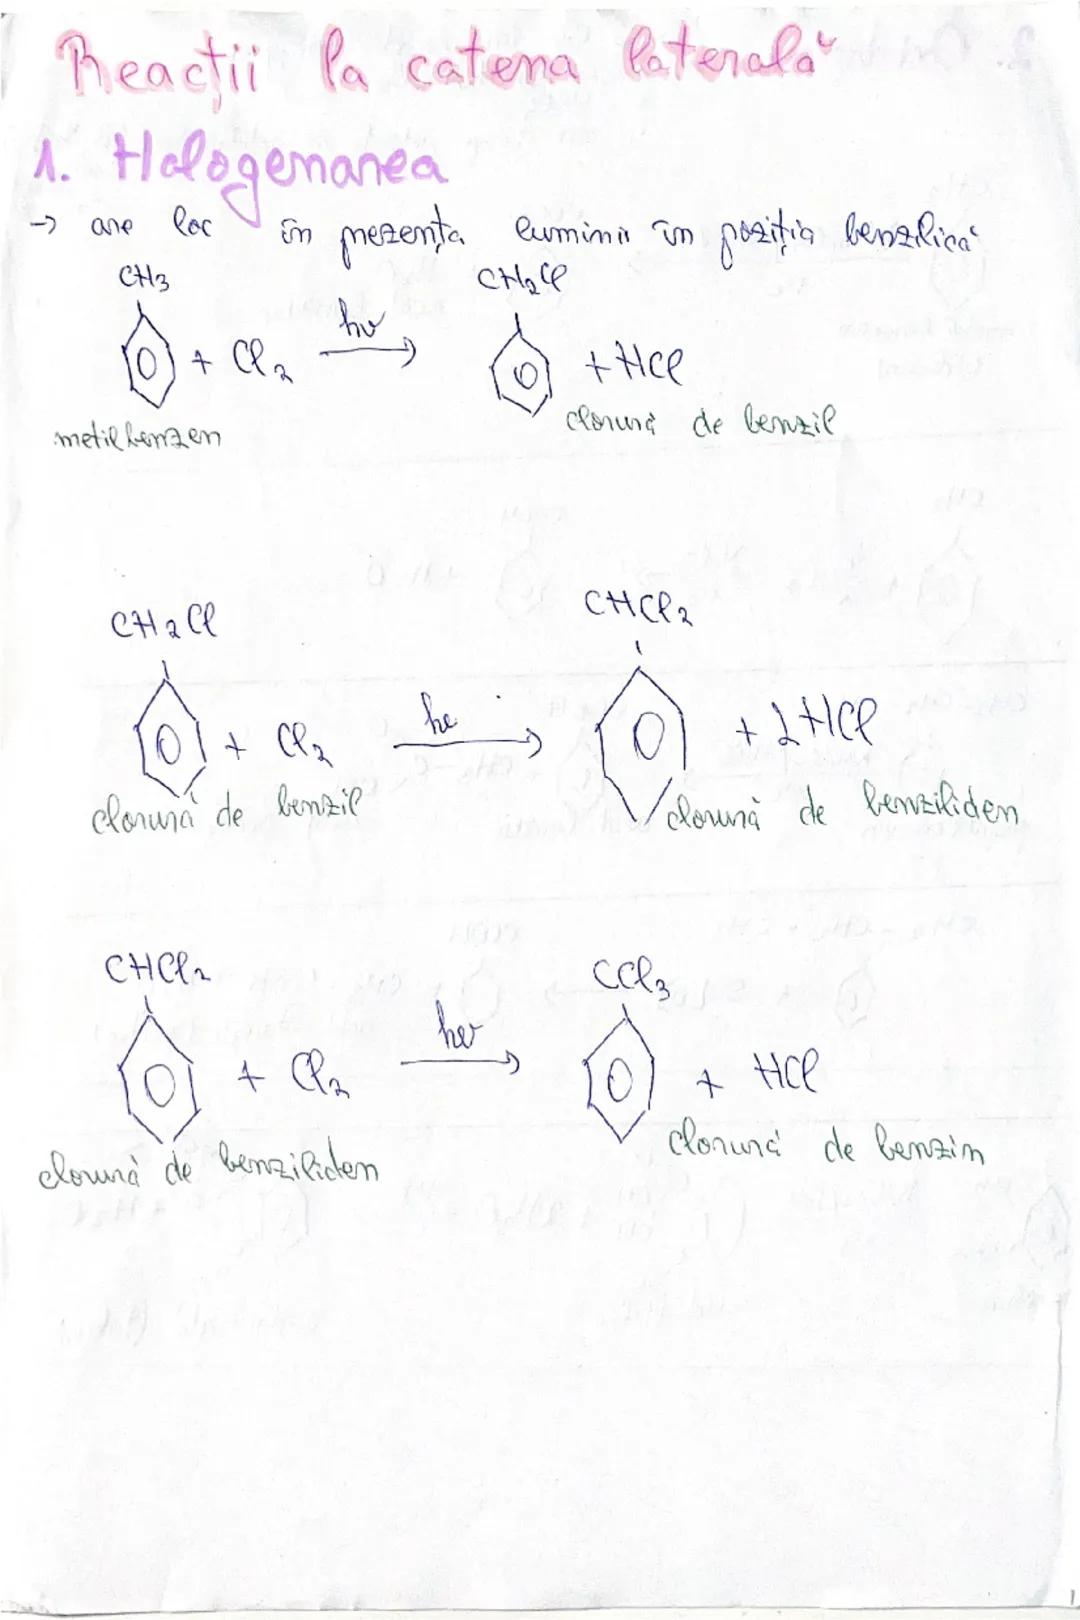 Reacții la catena laterală
1. Halogenarea
→ are loc în prezența luminii în poziția benzilică
CH3 CH2Cl
+ Cl2 hν → + HCl
metilbenzen clorură de benzil
CH2Cl CHCl2
+ Cl2 hν → + 2HCl
clorură de benzil clorură de benziliden
CHCl2 CCl3
+ Cl2 hν → + HCl
clorură de benziliden clorură de benzin